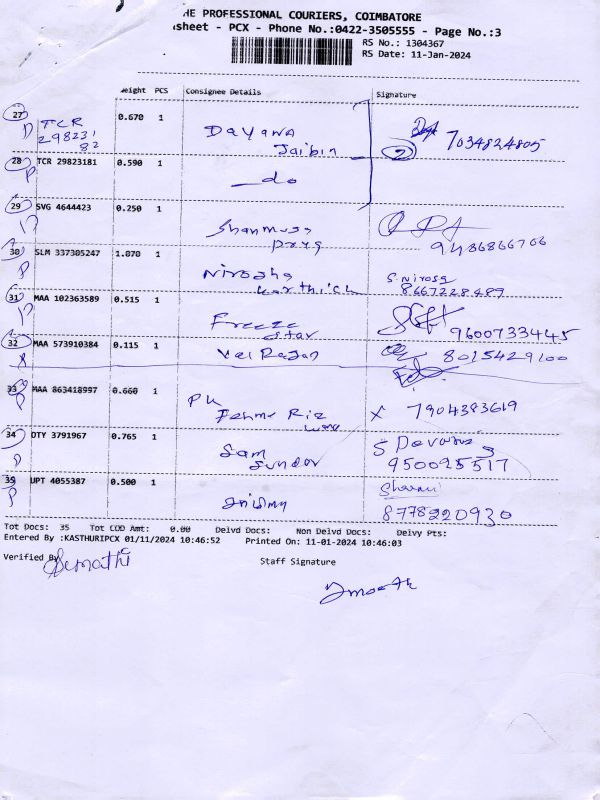 HE PROFESSIONAL COURIERS, COIMBATORE
sheet - PCX - Phone No.:0422-3505555 - Page No.:3
RS No.: 1304367
RS Date: 11-Jan-2024
eight PCS Consignee Details Signature
27 TCR 0.670 1 Dayana 7034824805
29823182 Jaibin
28 TCR 29823181 0.590 1 do
29 SVG 4644423 0.250 1 9486866706
30 SLM 337305247 1.070 1 Nirosha S.Nirosa
Karthick 8667228489
31 MAA 102363589 0.515 1 Freeze 9600733445
star
32 MAA 573910384 0.115 1 Vel Rajan 8015429100
33 MAA 863418997 0.660 1 7904383619
34 DTY 3791967 0.765 1 Sam S Devaraj
Sundar 950095517
35 UPT 4055387 0.500 1
8778220930
Tot Docs: 35 Tot COD Amt: 0.00 Delvd Docs: Non Delvd Docs: Delvy Pts:
Entered By :KASTHURIPCX 01/11/2024 10:46:52 Printed On: 11-01-2024 10:46:03
Verified By Staff Signature